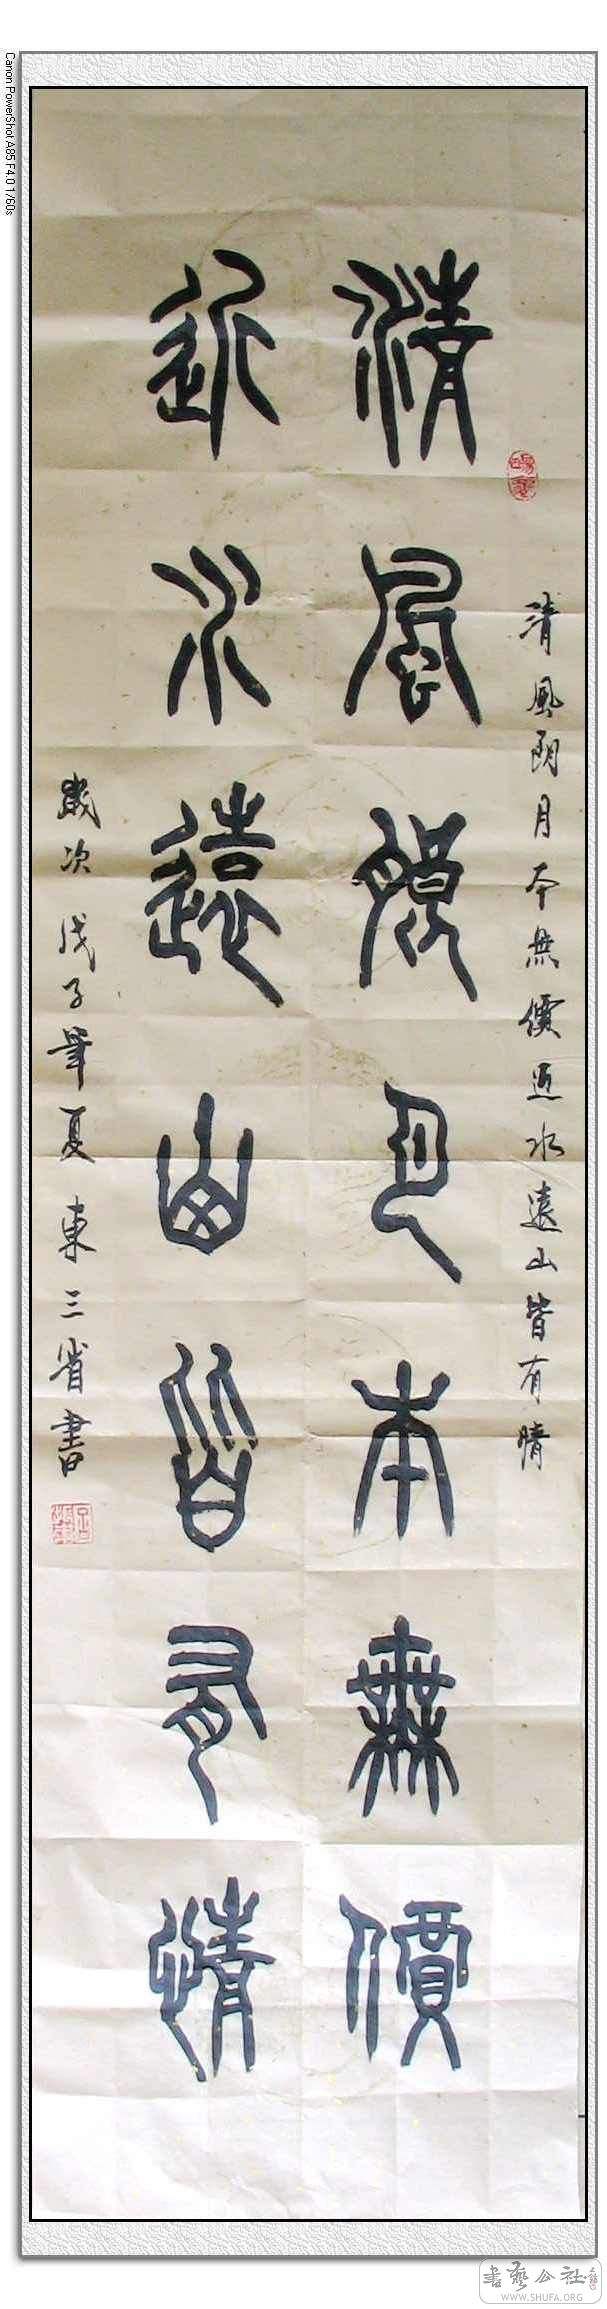 清風朗月本無價
近水遠山皆有情
清風朗月本無價近水遠山皆有情
歲次戊子年夏 東三省書
Canon PowerShot A85 F4.0 1/60s
書藝公社
WWW.SHUFA.ORG